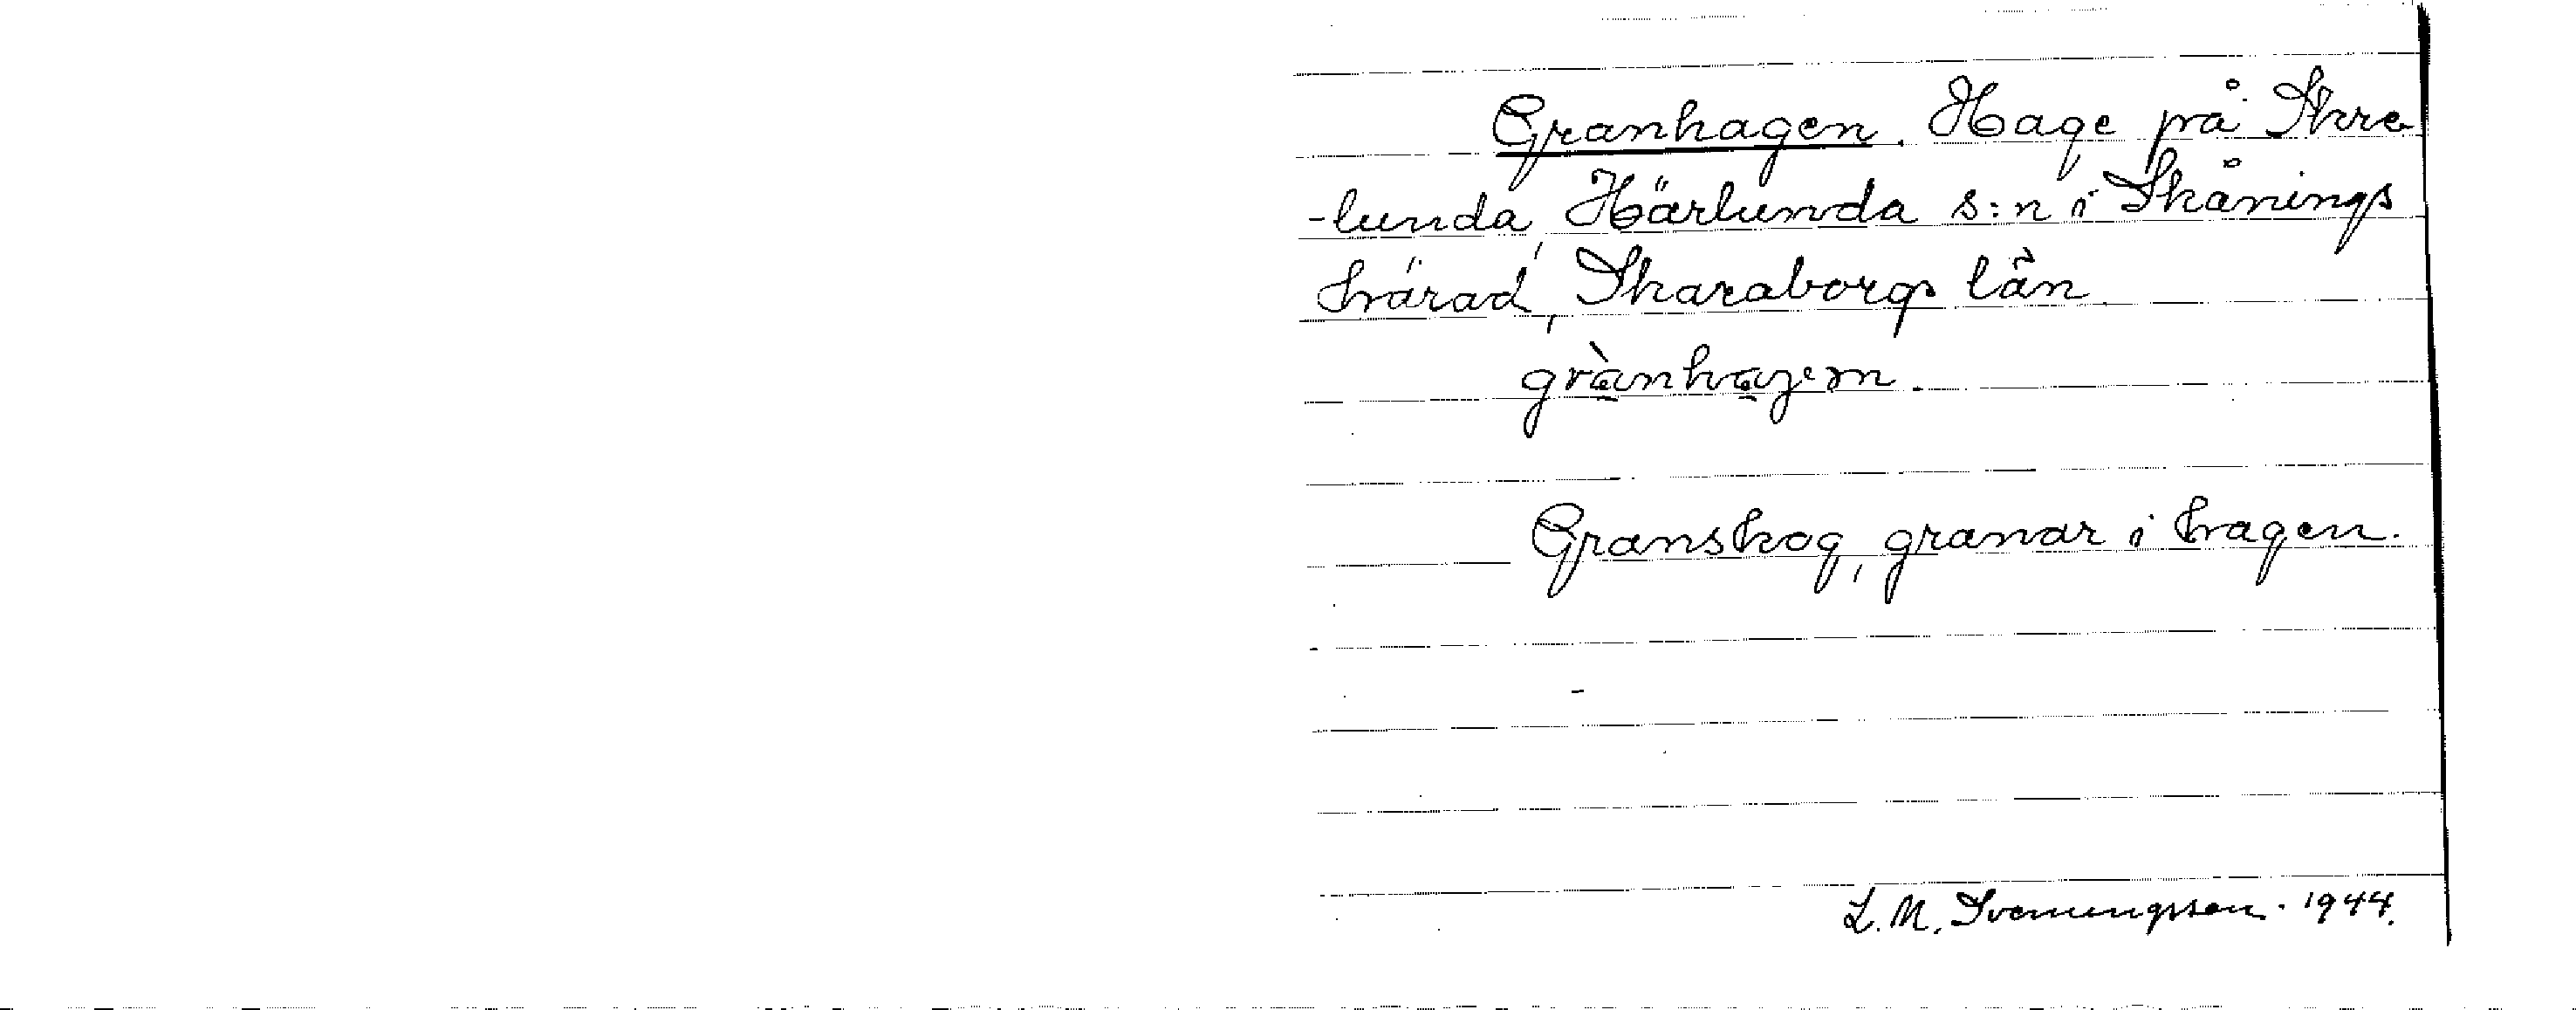 Granhagen. Hage på Skre
-lunda, Härlunda s:n i Skånings
härad, Skaraborgs län.
grànhagen.
Granskog, granar i hagen.
L. M. Svenungsson. 1944.